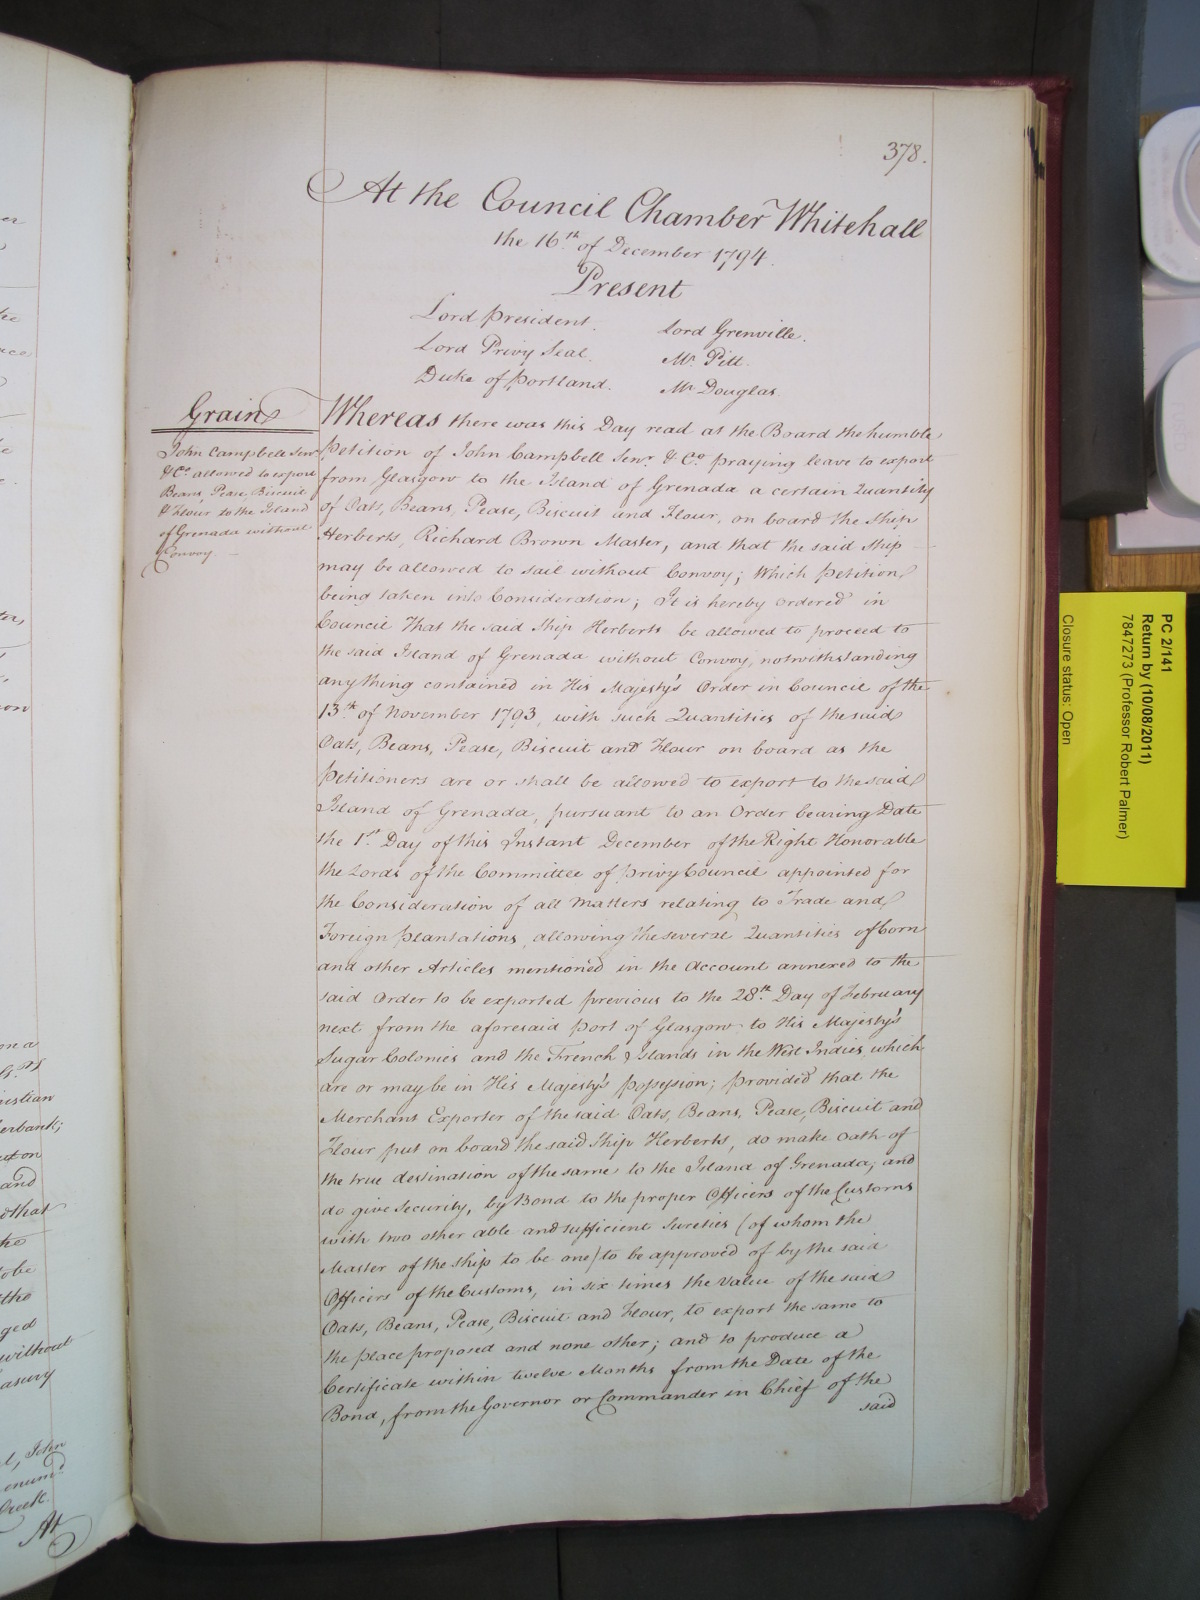 378.
At the Council Chamber Whitehall
the 16th of December 1794.
Present
Lord President. Lord Grenville.
Lord Privy Seal. Mr. Pitt.
Duke of Portland. Mr Douglas
Grain
John Campbell Senr
& Co. allowed to export
Beans, Pease, Biscuit
& Flour to the Island
of Grenada without
Convoy.
Whereas there was this Day read at the Board the humble
Petition of John Campbell Senr. & Co. praying leave to export
from Glasgow to the Island of Grenada a certain Quantity
of Oats, Beans, Pease, Biscuit and Flour, on board the Ship
Herberts, Richard Brown Master, and that the said Ship
may be allowed to sail without Convoy; Which Petition
being taken into Consideration; It is hereby ordered in
Council That the said Ship Herberts be allowed to proceed to
the said Island of Grenada without Convoy, notwithstanding
any thing contained in His Majesty's Order in Council of the
13th of November 1793, with such Quantities of the said
Oats, Beans, Pease, Biscuit and Flour on board as the
Petitioners are or shall be allowed to export to the said
Island of Grenada, pursuant to an Order bearing Date
the 1st Day of this Instant December of the Right Honorable
the Lords of the Committee of Privy Council appointed for
the Consideration of all Matters relating to Trade and
Foreign Plantations, allowing the several Quantities of Corn
and other Articles mentioned in the Account annexed to the
said Order to be exported previous to the 28th Day of February
next from the aforesaid Port of Glasgow to His Majesty's
Sugar Colonies and the French Islands in the West Indies which
are or may be in His Majesty's Possession; provided that the
Merchant Exporter of the said Oats, Beans, Pease, Biscuit and
Flour put on board the said Ship Herberts, do make Oath of
the true destination of the same to the Island of Grenada; and
do give Security, by Bond to the proper Officers of the Customs
with two other able and sufficient Sureties (of whom the
Master of the Ship to be one) to be approved of by the said
Officers of the Customs, in six times the Value of the said
Oats, Beans, Pease, Biscuit and Flour, to export the same to
the place proposed and none other; and to produce a
Certificate within twelve Months from the Date of the
Bond, from the Governor or Commander in Chief of the
said
PC 2/141
Return by (10/08/2011)
7847273 (Professor Robert Palmer)
Closure status: Open